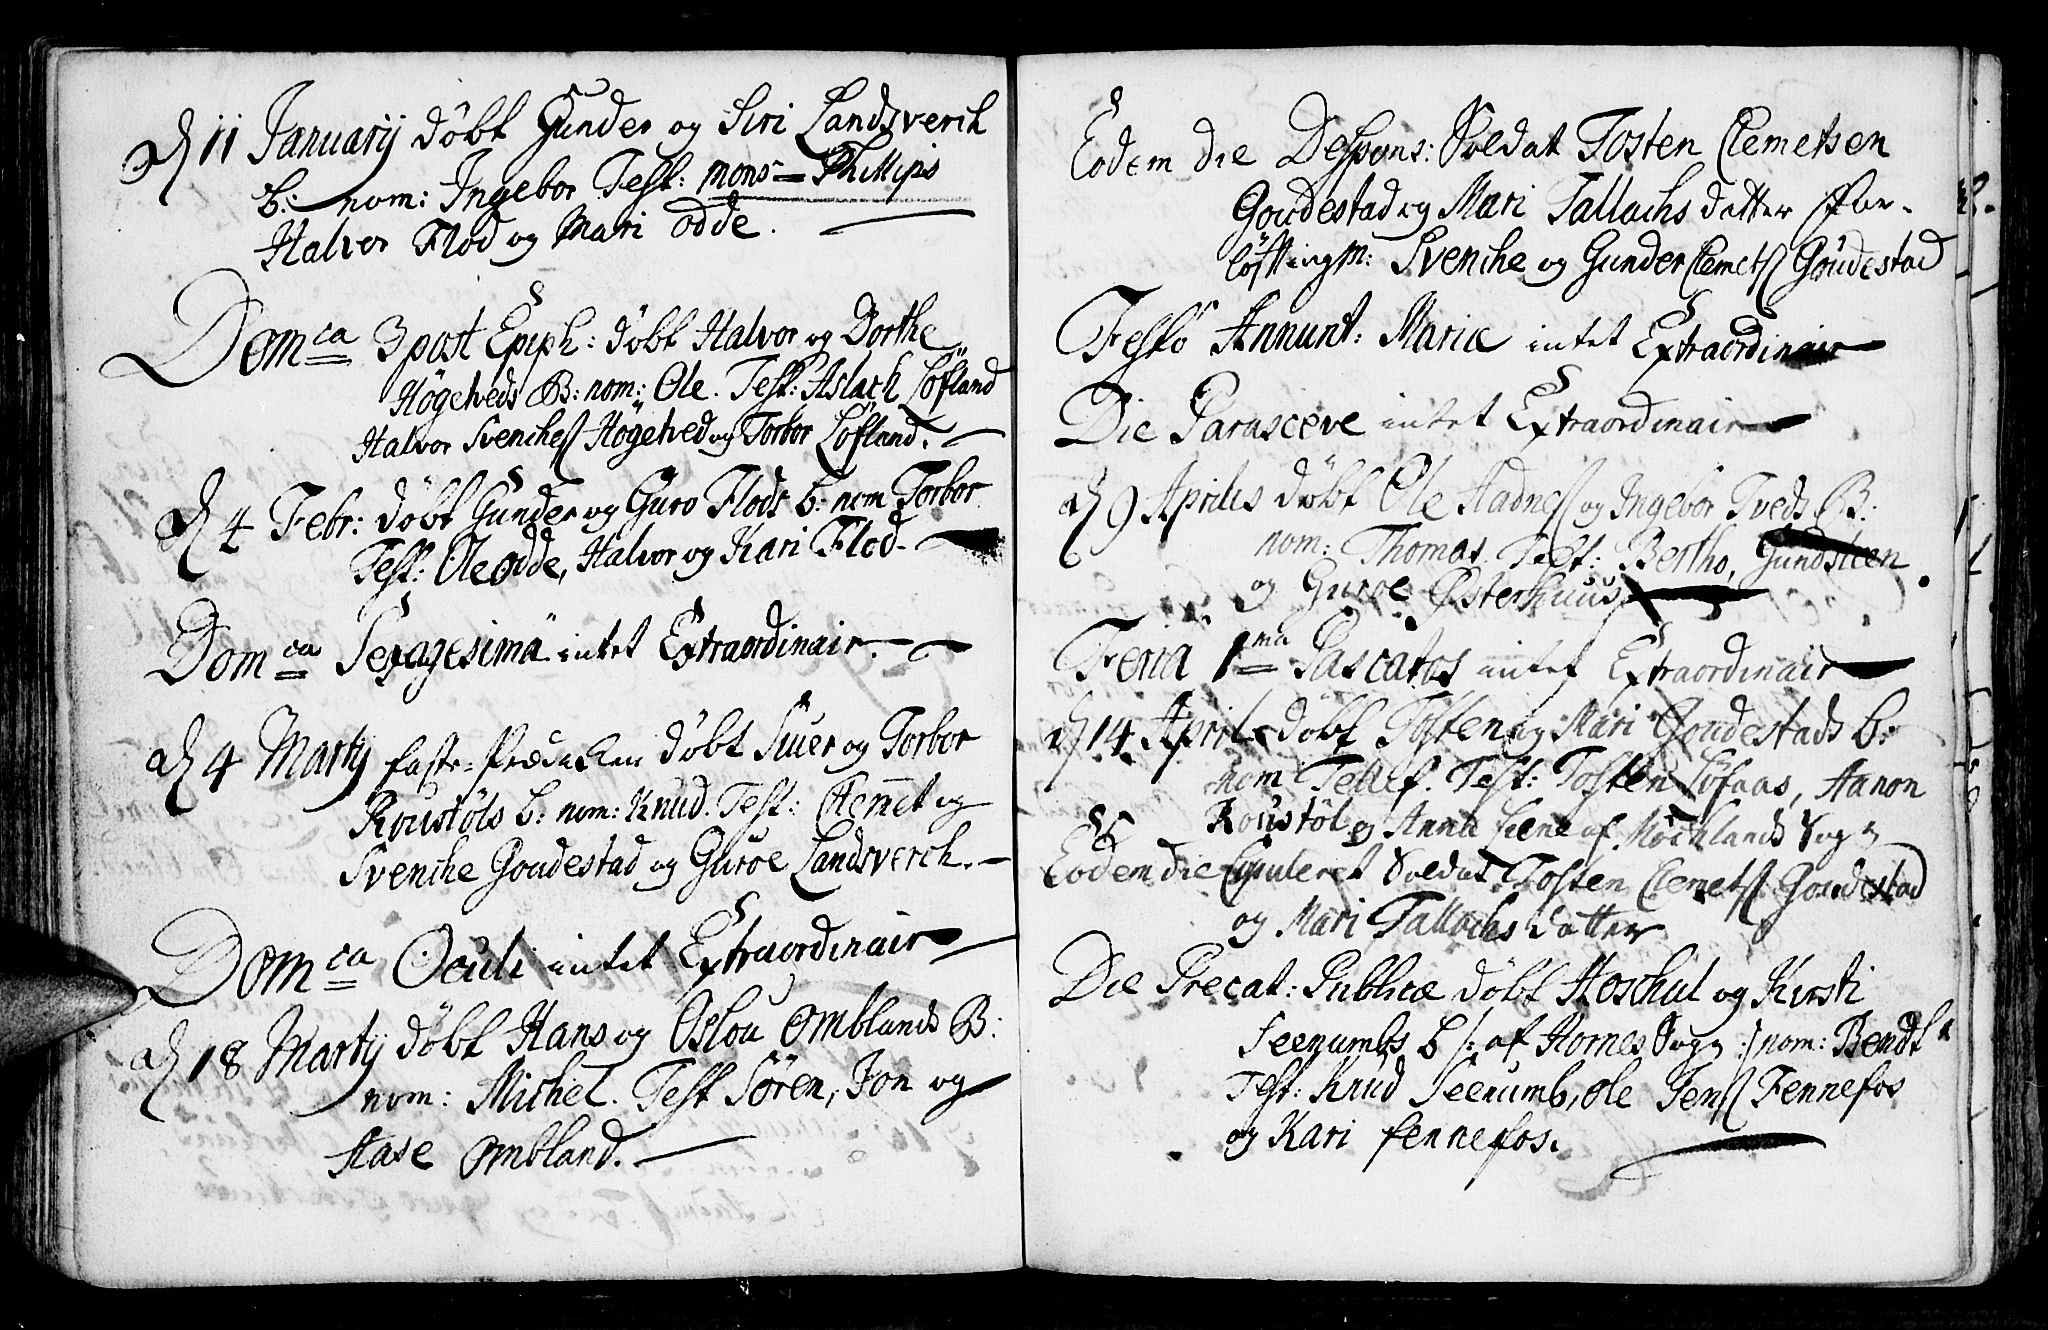 d 11 Januarij döbt Gunder og Siri Landsverch
b: nom: Ingebor Test: mons= Phillips
Halvor Flod og Mari Odde.
Dom ca 3 post Epiph: döbt Halvor og Dorthe
Högetveds B: nom: Ole. Test: Aslach Löfland
Halvor Svenches Högetved og Torbor Löfland.
d 4 Febr: döbt Gunder og Guro Flods b: nom Torbor
Test: Ole Odde, Halvor og Kari Flod.
Dom ca Sexagesima intet Extraordinair.
d 4 Martij faste-Prædeken döbt Siuer og Torbor
Roustöls b: nom: Knud. Test: Clemet og
Svenche Goudestad og Guroe Landsverch.
Dom ca Oculi intet Extraordinair
d 18 Martij döbt Hans og Oslou Omblands B:
nom: Michel. Test Sören, Jon og
Aase Ombland.
Eodem die Despons: Soldat Tosten Clemetsen
Goudestad og Mari Tallachs datter For-
löftingm: Svenche og Gunder Clemets Goudestad
Festo Annunt: Mariæ intet Extraordinair
Die Parasceve intet Extraordinair
d 9 Aprilis döbt Ole Aadnes og Ingebor Tveds B:
nom: Thomas. Test: Bertho, Gundsteen
og Guroe Østerhuus
Feria 1 ma Pascatos intet Extraordinair
d 14 April döbt Tosten og Mari Goudestads b:
nom Tellef. Test: Tosten Löfaas, Aanon
Roustöl og Anna af Mochlands Sogn
Eodem die Copuleret Soldat Tosten Clemets Goudestad
og Mari Tallachs datter
Die Precat: Publicæ döbt Hoschul og Kirsti
Seenumbs b /: af Hornes Sogn :/ nom: Bendt
Test: Knud Seenumb, Ole Jens Fennefos
og Kari fennefos.